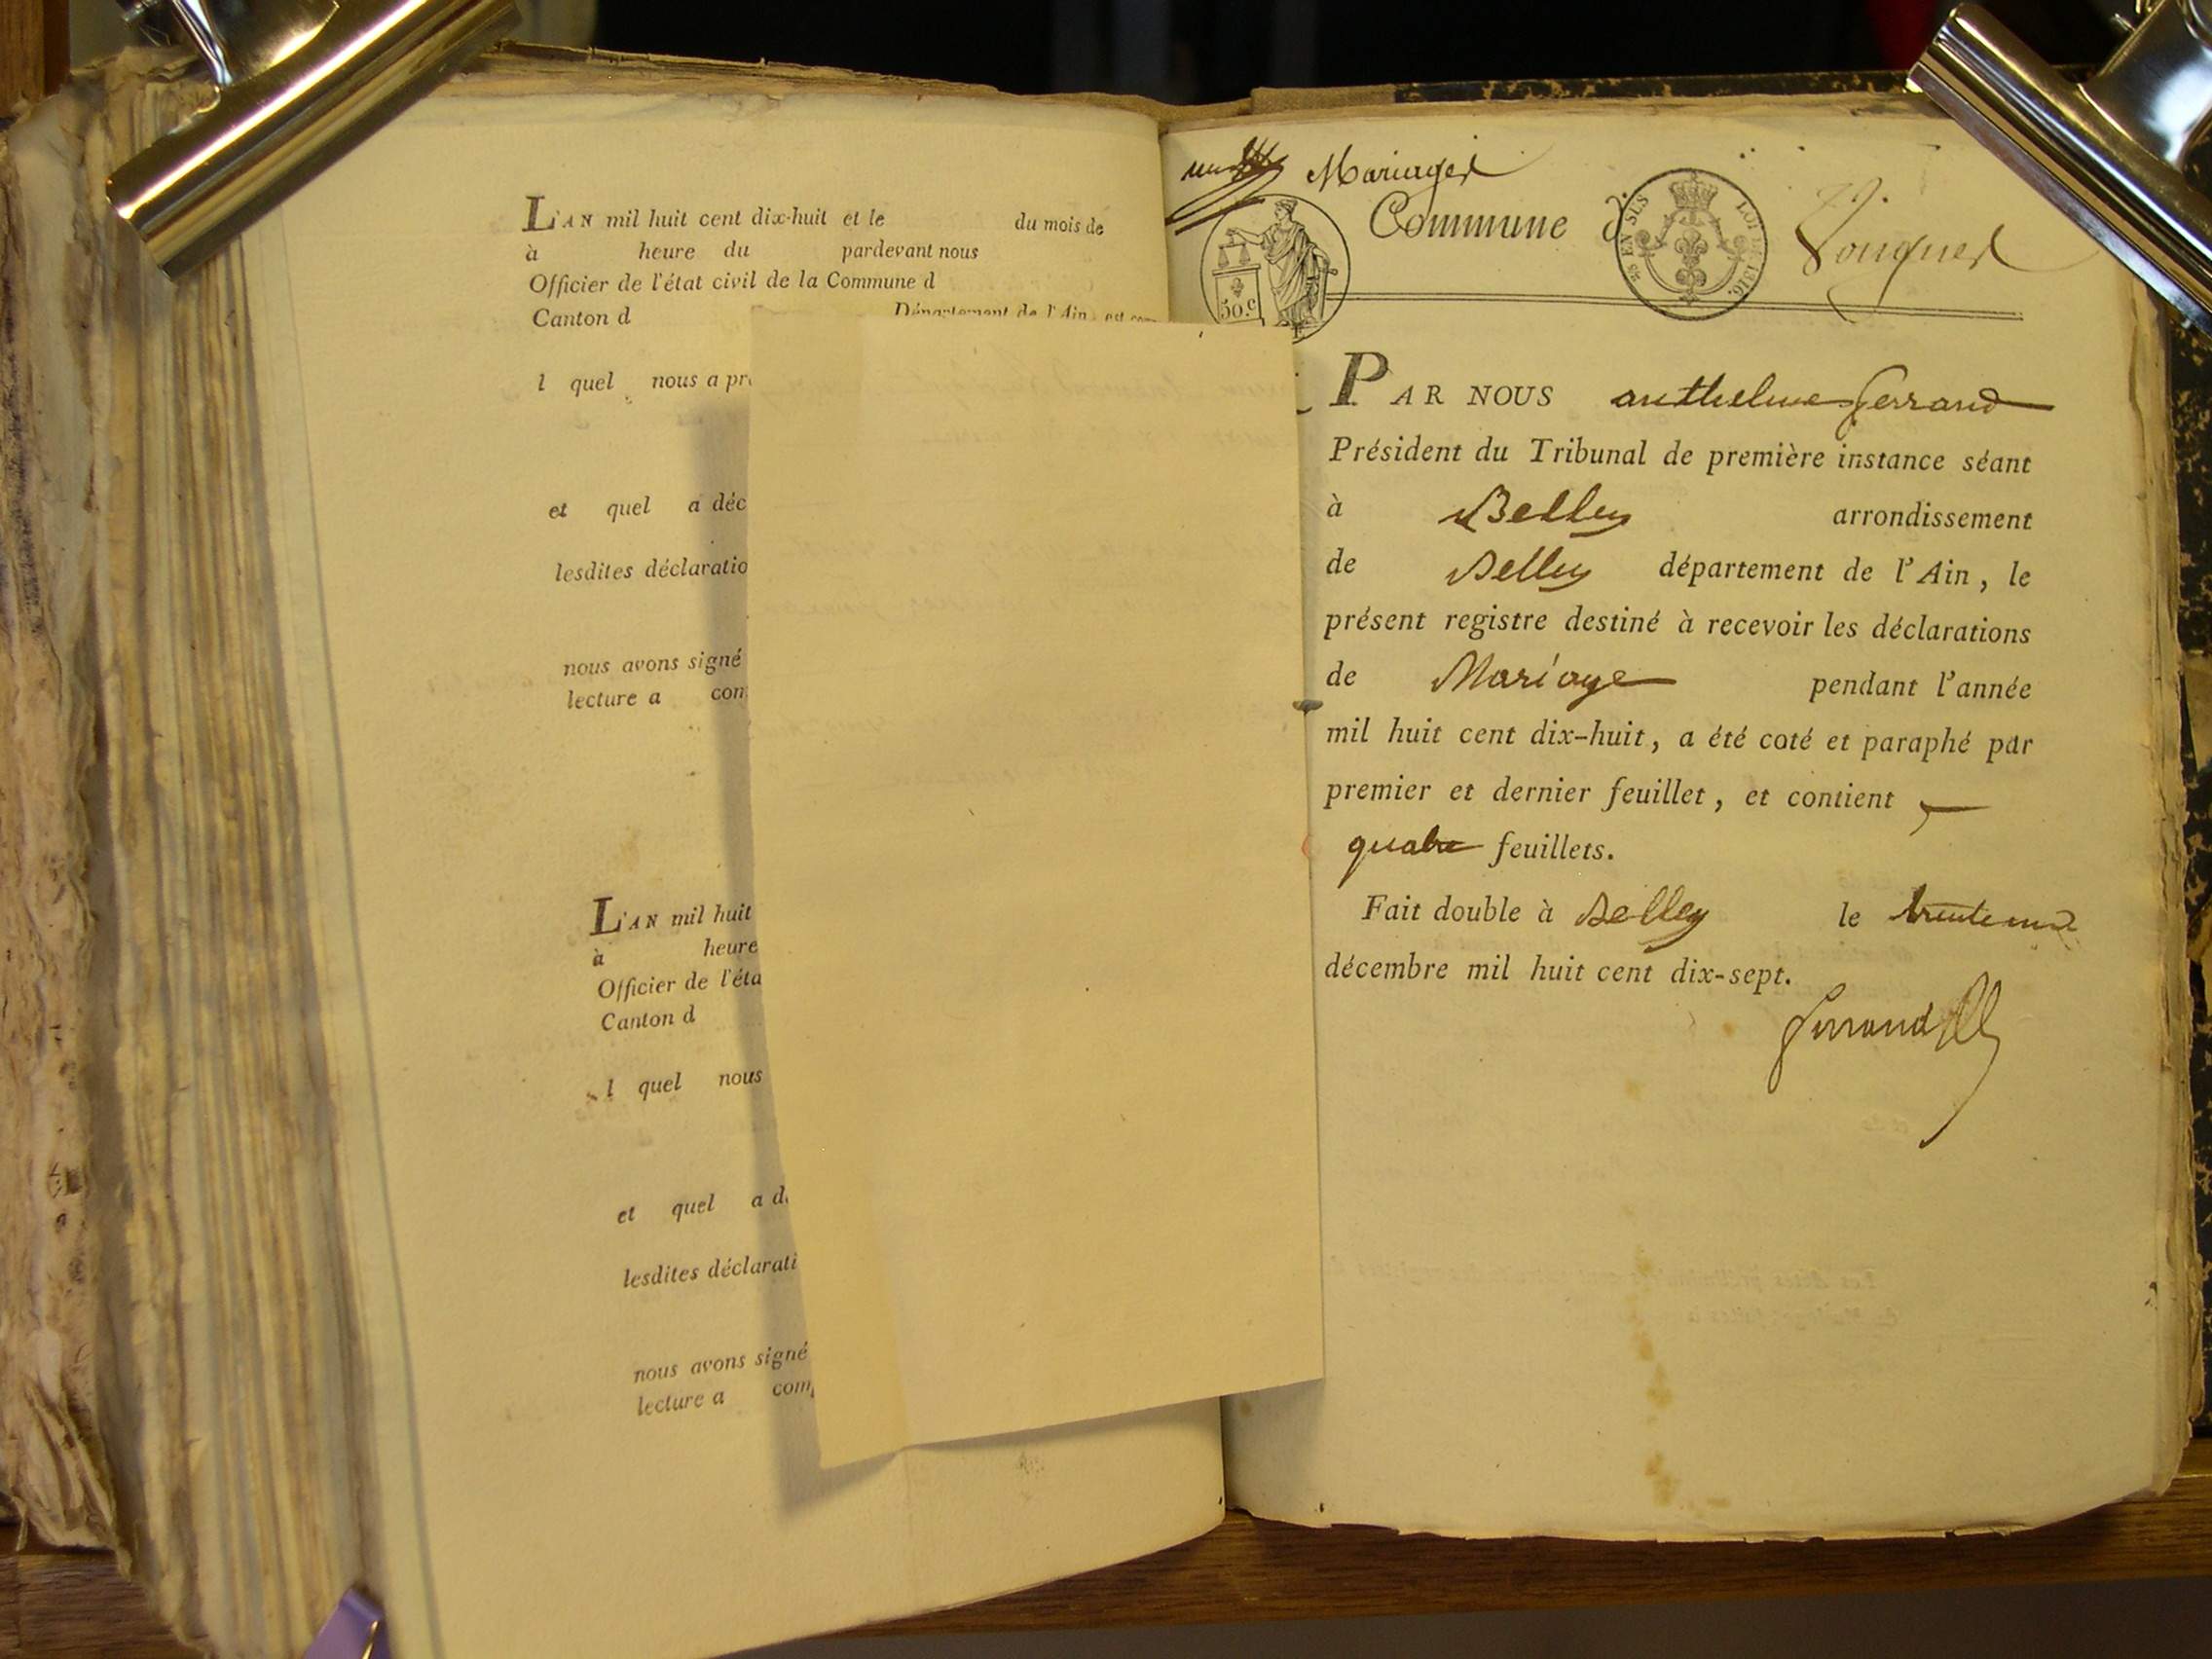 L'AN mil huit cent dix-huit et le du mois de
à heure du pardevant nous
Officier de l'état civil de la Commune d
Canton d Département de l'Ain, est com
l quel nous a pr
et quel a déc
lesdites déclaratio
nous avons signé
lecture a com
L'AN mil huit
à heure
Officier de l'éta
Canton d
l quel nous
et quel a d
lesdites déclarati
nous avons signé
lecture a com
Mariages
Commune d
EN SUS LOI DE 1816.
50.c
PAR NOUS anthelme ferrand
Président du Tribunal de première instance séant
à Belley arrondissement
de Belley département de l'Ain, le
présent registre destiné à recevoir les déclarations
de Mariage pendant l'année
mil huit cent dix-huit, a été coté et paraphé par
premier et dernier feuillet, et contient
quatre feuillets.
Fait double à Belley le trente un
décembre mil huit cent dix-sept.
ferrand